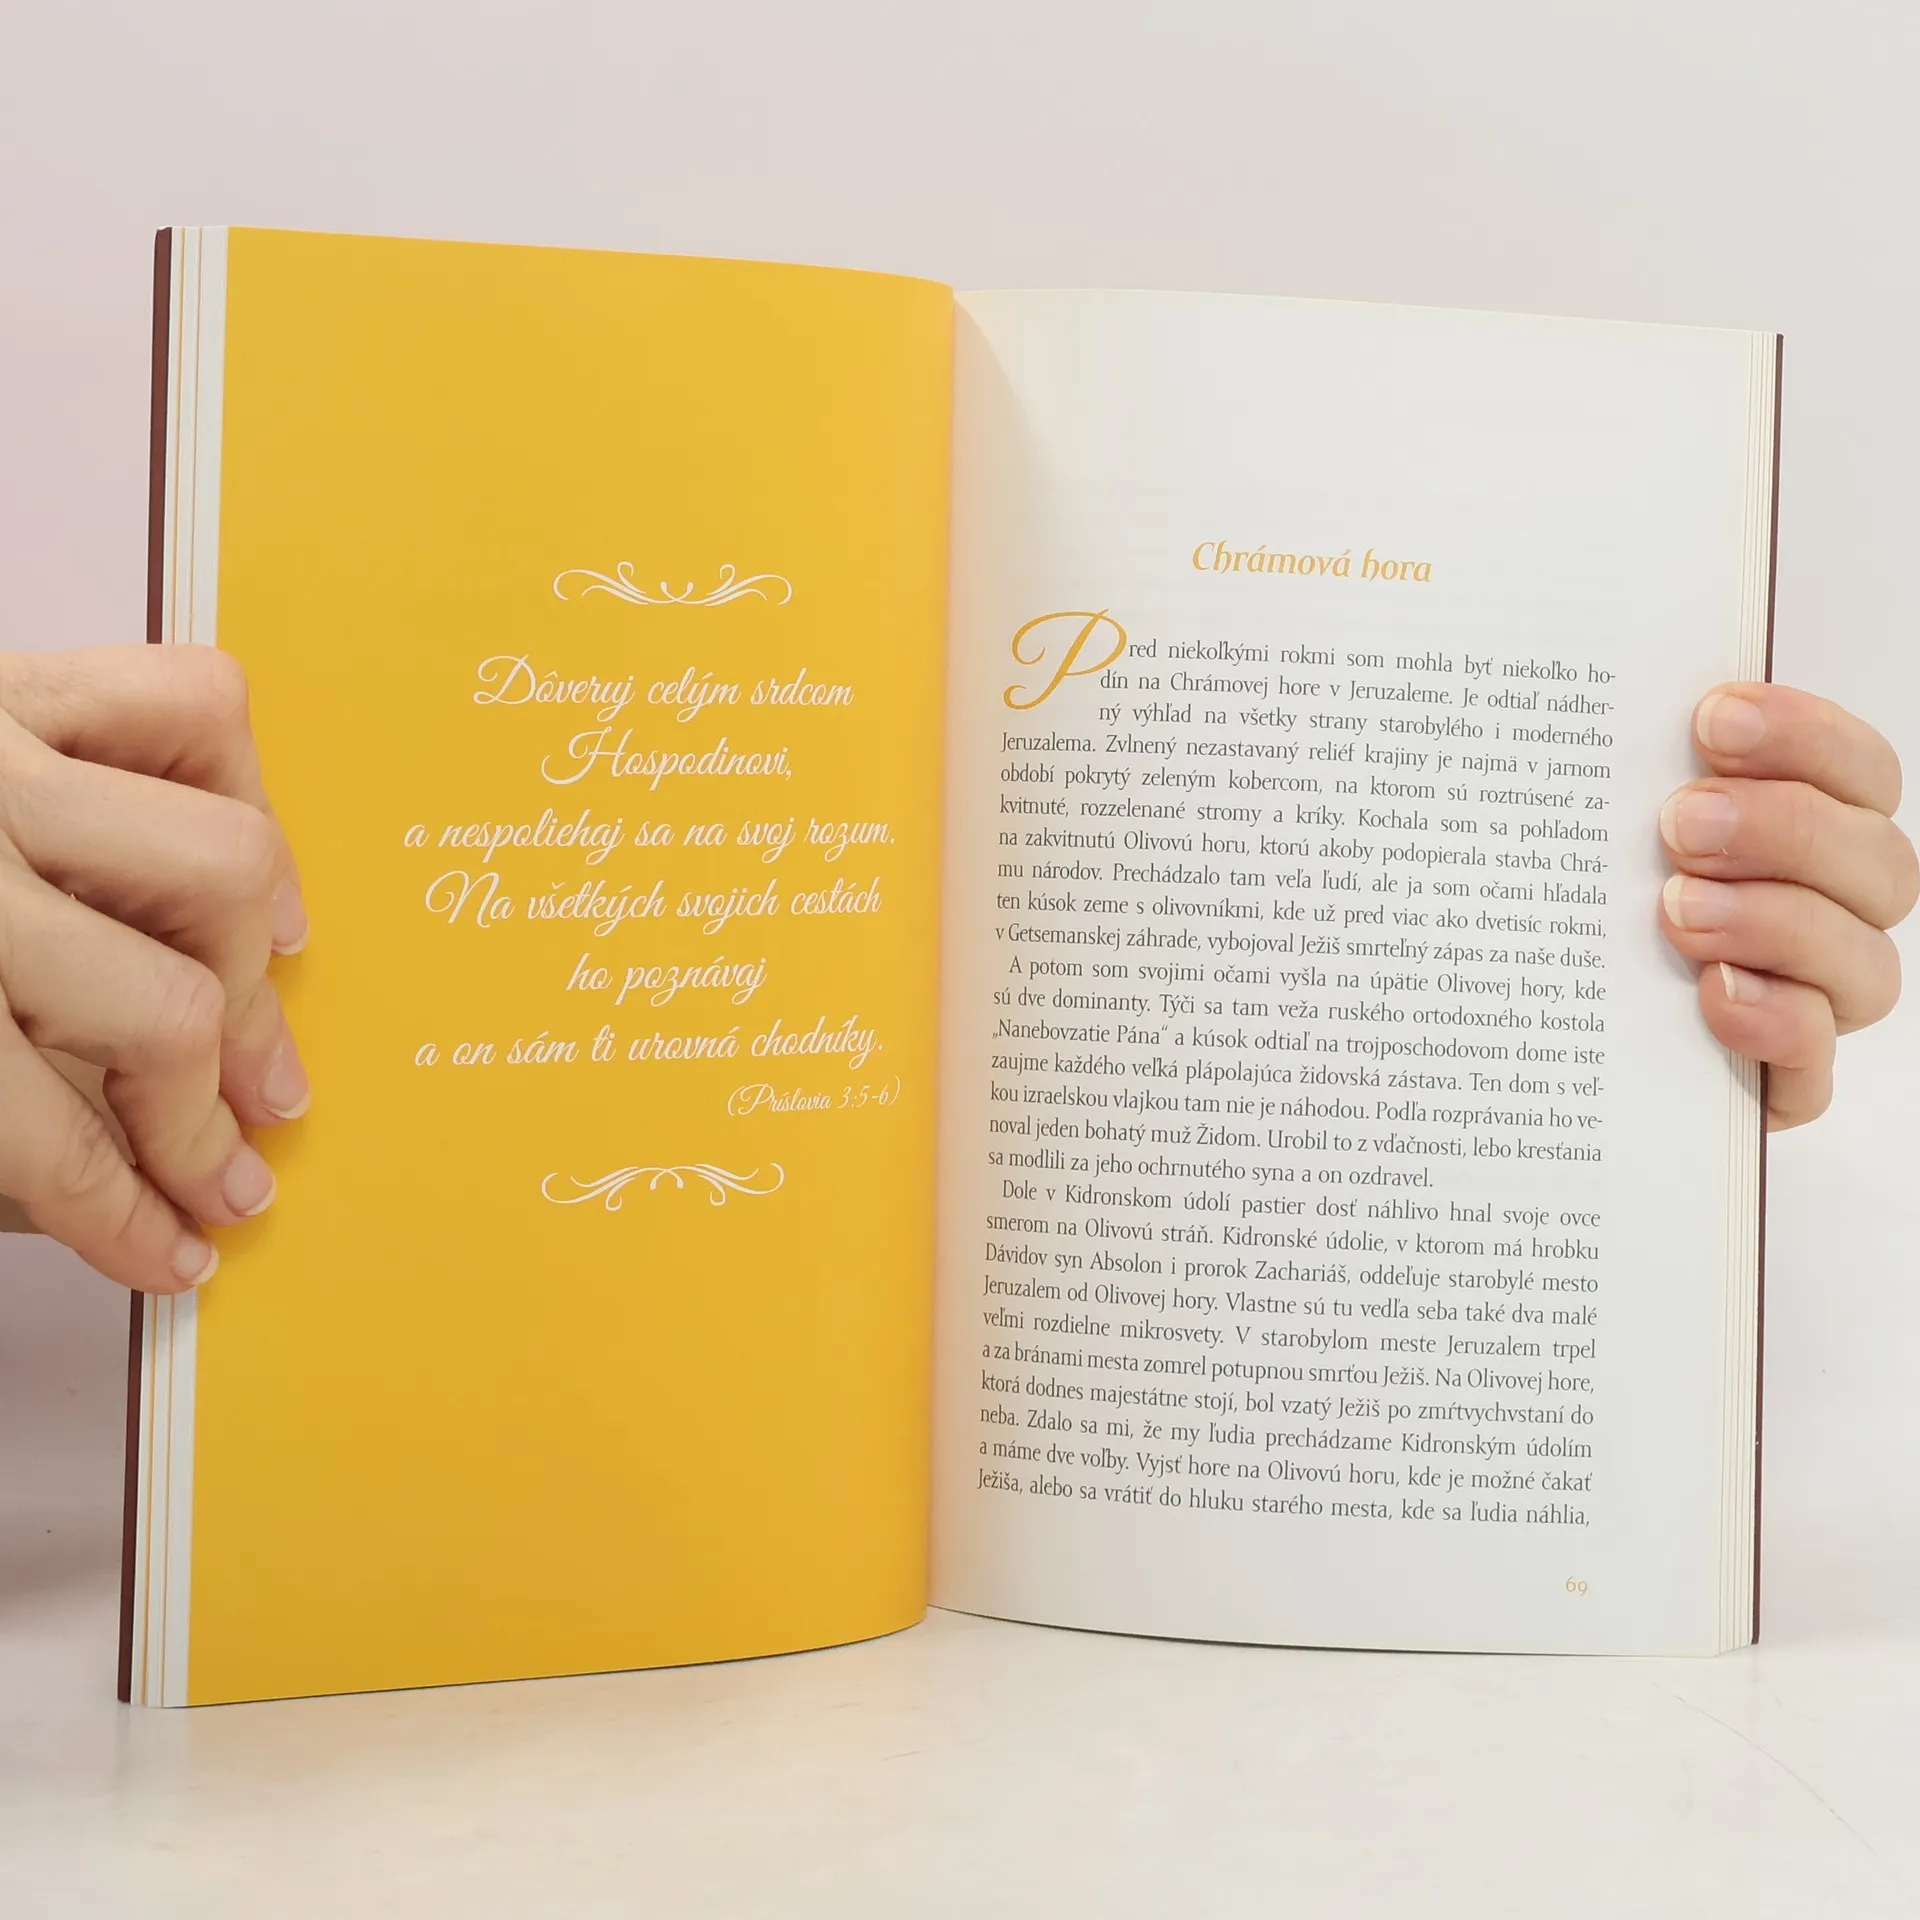 Dôveruj celým srdcom
Hospodinovi,
a nespoliehaj sa na svoj rozum.
Na všetkých svojich cestách
ho poznávaj
a on sám ti urovná chodníky.
(Príslovia 3:5-6)
Chrámová hora
Pred niekoľkými rokmi som mohla byť niekoľko ho-
dín na Chrámovej hore v Jeruzaleme. Je odtiaľ nádher-
ný výhľad na všetky strany starobylého i moderného
Jeruzalema. Zvlnený nezastavaný reliéf krajiny je najmä v jarnom
období pokrytý zeleným kobercom, na ktorom sú roztrúsené za-
kvitnuté, rozzelenané stromy a kríky. Kochala som sa pohľadom
na zakvitnutú Olivovú horu, ktorú akoby podopierala stavba Chrá-
mu národov. Prechádzalo tam veľa ľudí, ale ja som očami hľadala
ten kúsok zeme s olivovníkmi, kde už pred viac ako dvetisíc rokmi,
v Getsemanskej záhrade, vybojoval Ježiš smrteľný zápas za naše duše.
A potom som svojimi očami vyšla na úpätie Olivovej hory, kde
sú dve dominanty. Týči sa tam veža ruského ortodoxného kostola
„Nanebovzatie Pána“ a kúsok odtiaľ na trojposchodovom dome iste
zaujme každého veľká plápolajúca židovská zástava. Ten dom s veľ-
kou izraelskou vlajkou tam nie je náhodou. Podľa rozprávania ho ve-
noval jeden bohatý muž Židom. Urobil to z vďačnosti, lebo kresťania
sa modlili za jeho ochrnutého syna a on ozdravel.
Dole v Kidronskom údolí pastier dosť náhlivo hnal svoje ovce
smerom na Olivovú stráň. Kidronské údolie, v ktorom má hrobku
Dávidov syn Absolon i prorok Zachariáš, oddeľuje starobylé mesto
Jeruzalem od Olivovej hory. Vlastne sú tu vedľa seba také dva malé
veľmi rozdielne mikrosvety. V starobylom meste Jeruzalem trpel
a za bránami mesta zomrel potupnou smrťou Ježiš. Na Olivovej hore,
ktorá dodnes majestátne stojí, bol vzatý Ježiš po zmŕtvychvstaní do
neba. Zdalo sa mi, že my ľudia prechádzame Kidronským údolím
a máme dve voľby. Vyjsť hore na Olivovú horu, kde je možné čakať
Ježiša, alebo sa vrátiť do hluku starého mesta, kde sa ľudia náhlia,
69